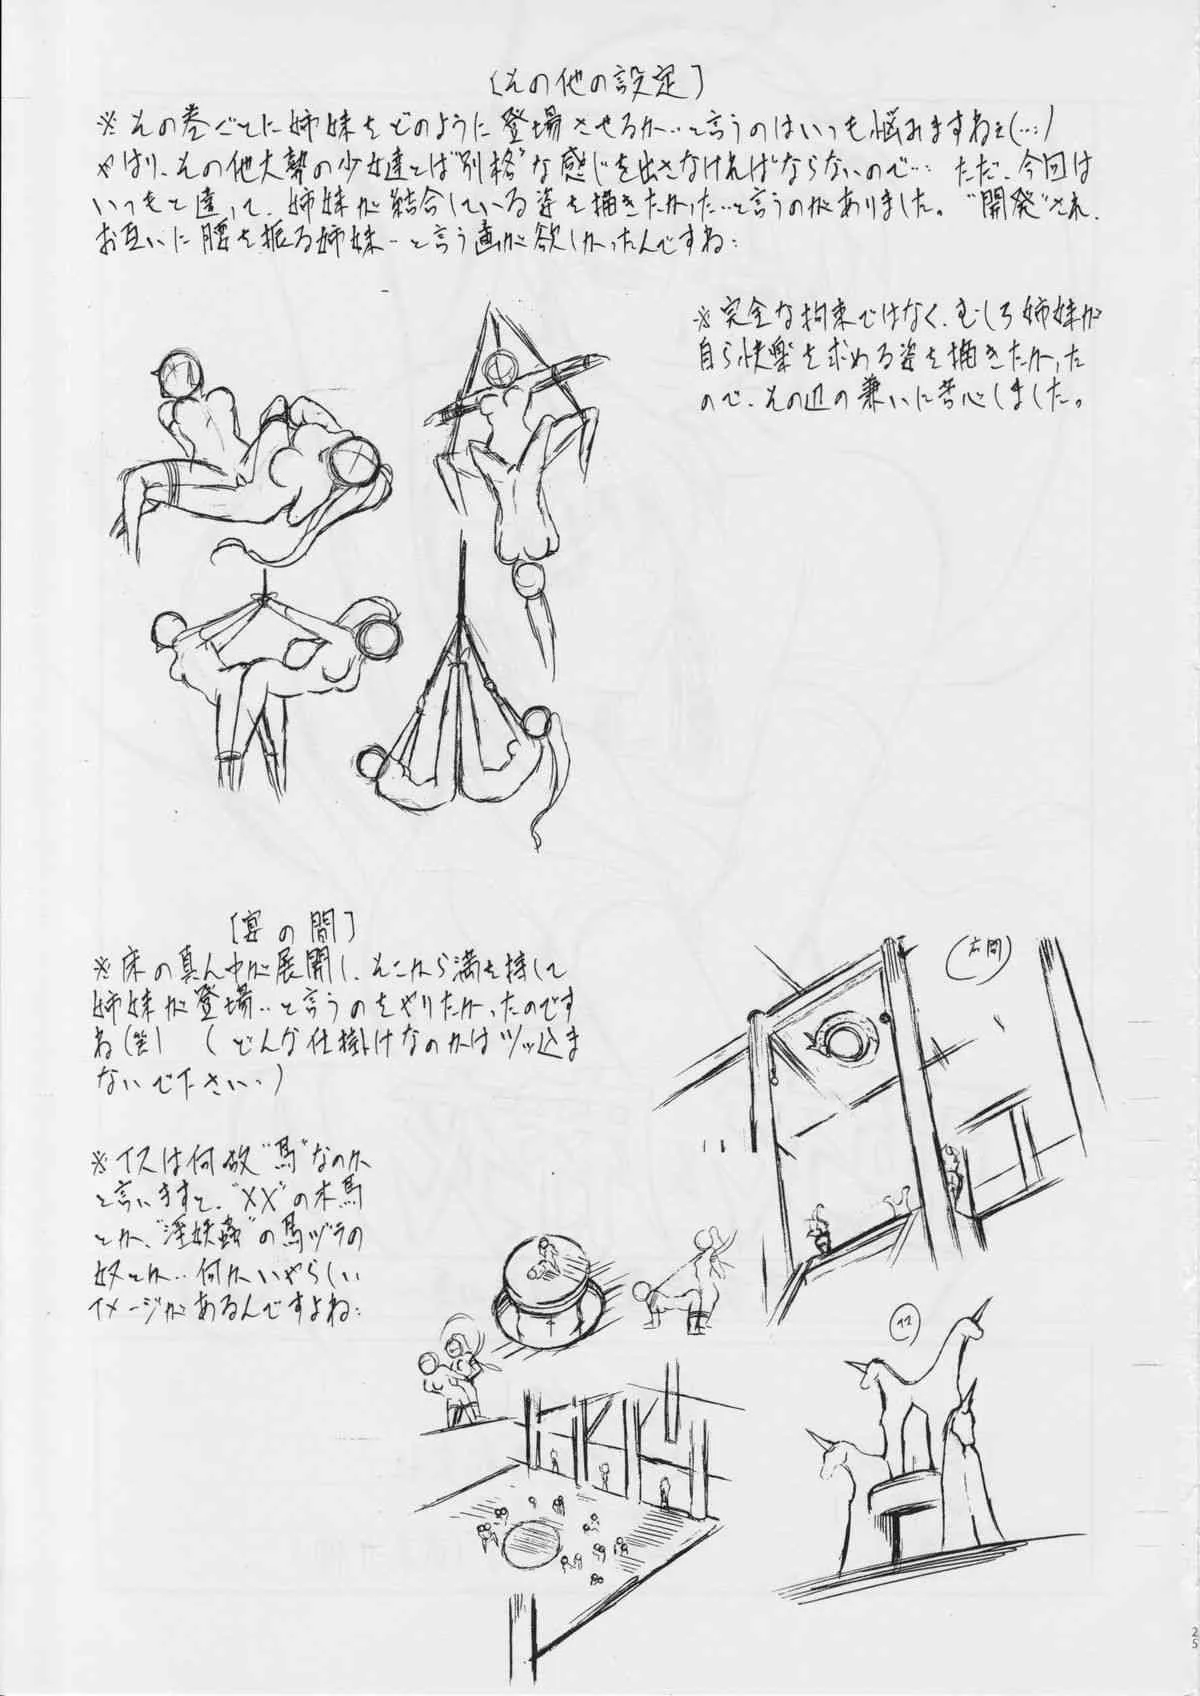 [その他の設定]
※その巻ごとに姉妹をどのように登場させるか…と言うのはいつも悩みますねぇ(…)
やはり、その他大勢の少女達とは"別格"な感じを出さなければならないので… ただ、今回は
いつもと違って、姉妹が結合している姿を描きたかった…と言うのがありました。"開発"され、
お互いに腰を振る姉妹…と言う画が欲しかったんですね…
※完全な拘束ではなく、むしろ姉妹が
自ら快楽を求める姿を描きたかった
ので、その辺の兼いに苦心しました。
[宴の間]
※床の真ん中が展開し、そこから満を持して
姉妹が登場…と言うのをやりたかったのです
ね(笑) (どんな仕掛けなのかはツッ込ま
ないで下さい…)
(右間)
※イスは何故"馬"なのか
と言いますと、"XX"の木馬
とか、"淫妖蟲"の馬ヅラの
奴とか…何かいやらしい
イメージがあるんですよね…
25